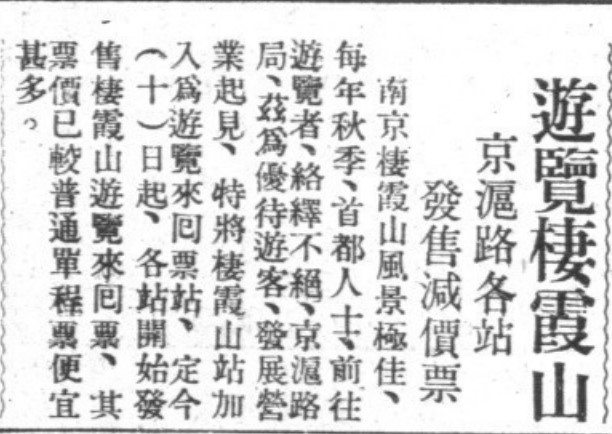 遊覽棲霞山
京滬路各站
發售減價票
南京棲霞山風景極佳、
每年秋季、首都人士、前往
遊覽者、絡繹不絕、京滬路
局、茲爲優待遊客、發展營
業起見、特將棲霞山站加
入爲遊覽來回票站、定今
（十）日起、各站開始發
售棲霞山遊覽來回票、其
票價已較普通單程票便宜
甚多。